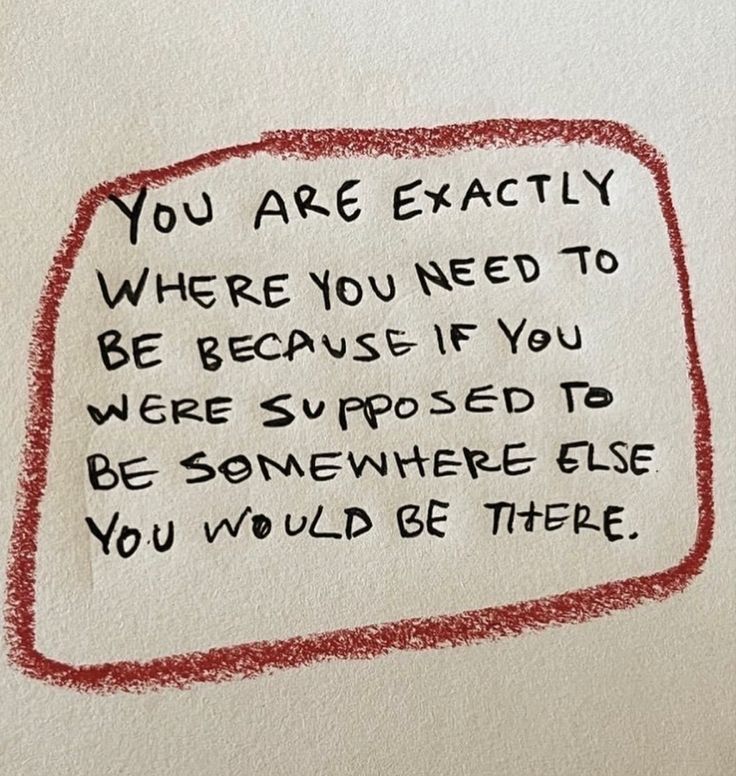 YOU ARE EXACTLY
WHERE YOU NEED TO
BE BECAUSE IF YOU
WERE SUPPOSED TO
BE SOMEWHERE ELSE
YOU WOULD BE THERE.